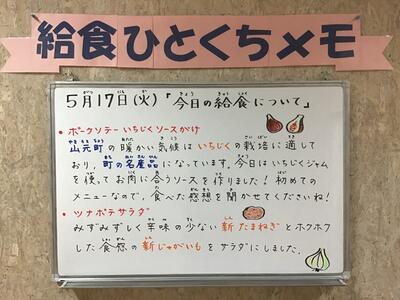 給食ひとくちメモ
5月17日(火)「今日の給食について」
・ポークソテーいちじくソースがけ
山元町の暖かい気候はいちじくの栽培に適して
おり、町の名産品になっています。今日はいちじくジャム
を使ってお肉に合うソースを作りました！初めての
メニューなので、食べた感想を聞かせてくださいね！
・ツナポテサラダ
みずみずしく辛味の少ない新たまねぎとホクホク
した食感の新じゃがいもをサラダにしました。